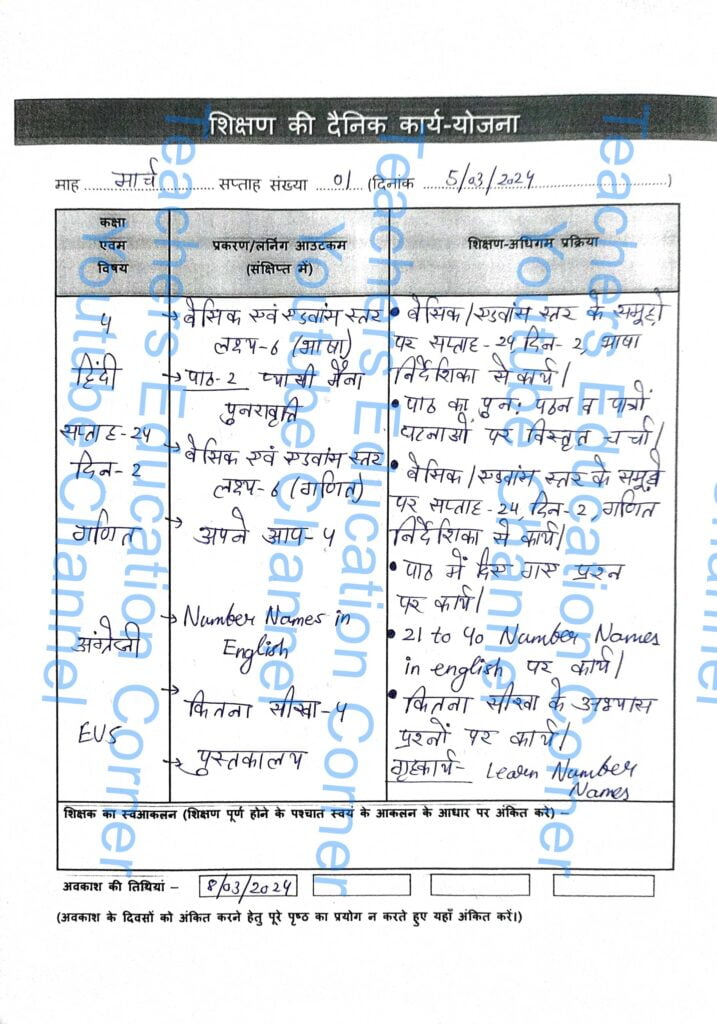 शिक्षण की दैनिक कार्य-योजना
माह मार्च सप्ताह संख्या 01 (दिनांक 5/03/2024)
कक्षा एवम विषय
प्रकरण/लर्निग आउटकम (संक्षिप्त में)
शिक्षण-अधिगम प्रक्रिया
4
हिंदी
सप्ताह-24
दिन-2
गणित
अंग्रेजी
EVS
→ बेसिक एवं एडवांस स्तर
लक्ष्य-6 (भाषा)
→ पाठ-2 प्यासी मैना
पुनरावृत्ति
→ बेसिक एवं एडवांस स्तर
लक्ष्य-6 (गणित)
→ अपने आप-4
→ Number Names in
English
→ कितना सीखा-4
→ पुस्तकालय
• बेसिक/एडवांस स्तर के समूहो
पर सप्ताह-24, दिन-2, भाषा
निर्देशिका से कार्य।
• पाठ का पुन: पठन व पात्रों
घटनाओं पर विस्तृत चर्चा।
• बेसिक/एडवांस स्तर के समूहो
पर सप्ताह-24, दिन-2, गणित
निर्देशिका से कार्य।
• पाठ में दिए गए प्रश्न
पर कार्य।
• 21 to 40 Number Names
in english पर कार्य।
• कितना सीखा के अभ्यास
प्रश्नों पर कार्य।
गृहकार्य- Learn Number
Names
शिक्षक का स्वआकलन (शिक्षण पूर्ण होने के पश्चात स्वयं के आकलन के आधार पर अंकित करे) –
अवकाश की तिथियां – 8/03/2024
(अवकाश के दिवसों को अंकित करने हेतु पूरे पृष्ठ का प्रयोग न करते हुए यहाँ अंकित करें।)
Teachers Education Corner
Youtube Channel
Teachers Education Corner
Youtube Channel
Teachers Education Corner
Youtube Channel